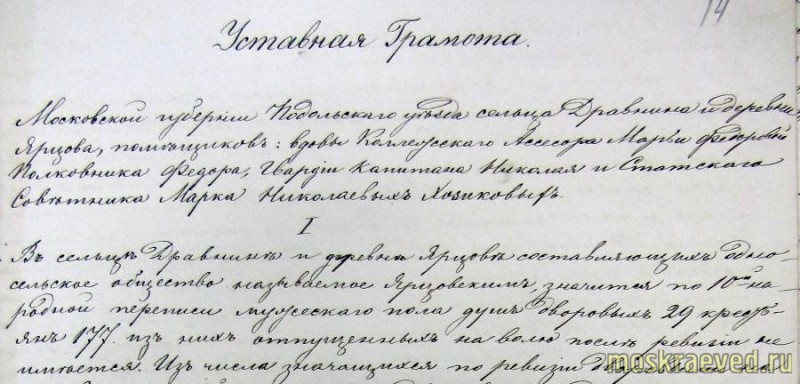 14
Уставная Грамота.
Московской губернiи Подольскаго уѣзда сельца Дравнина и деревни
Ярцова, помѣщиковъ: вдовы Коллежскаго Ассесора Марьи Федоровой
Полковника Федора, Гвардiи Капитана Николая и Статскаго
Совѣтника Марка Николаевыхъ Хозиковыхъ.
I
Въ сельцѣ Дравнинѣ и деревнѣ Ярцовѣ составляющихъ одно
сельское общество называемое Ярцовскимъ, значится по 10ой на-
родной переписи мужескаго пола душъ дворовыхъ 29 кресть-
янъ 177. изъ нихъ отпущенныхъ на волю послѣ ревизiи не
имѣется. Изъ числа значащихся по ревизiи
moskraeved.ru